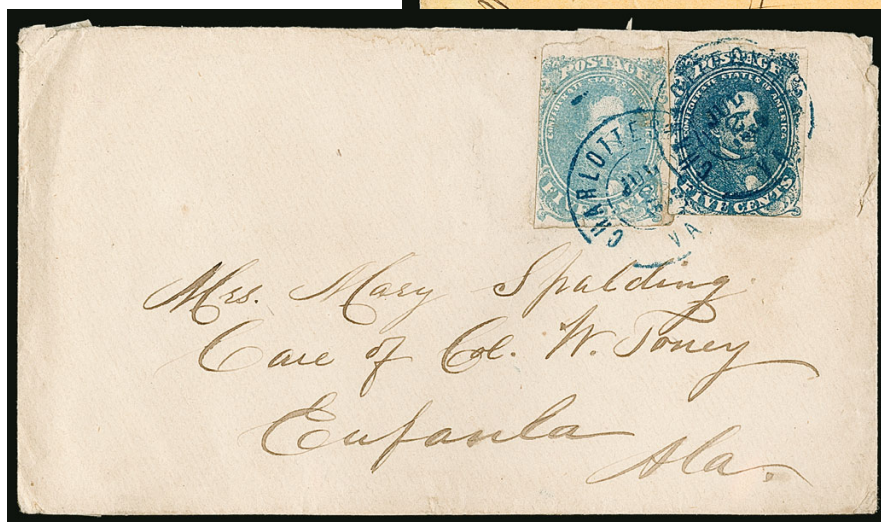 POSTAGE
CONFEDERATE STATES
FIVE CENTS
POSTAGE
CONFEDERATE STATES OF AMERICA
FIVE CENTS
CHARLOTTE
JUL
VA
JUL
VA
Mrs. Mary Spalding.
Care of Col. W. Toney
Eufaula
Ala.